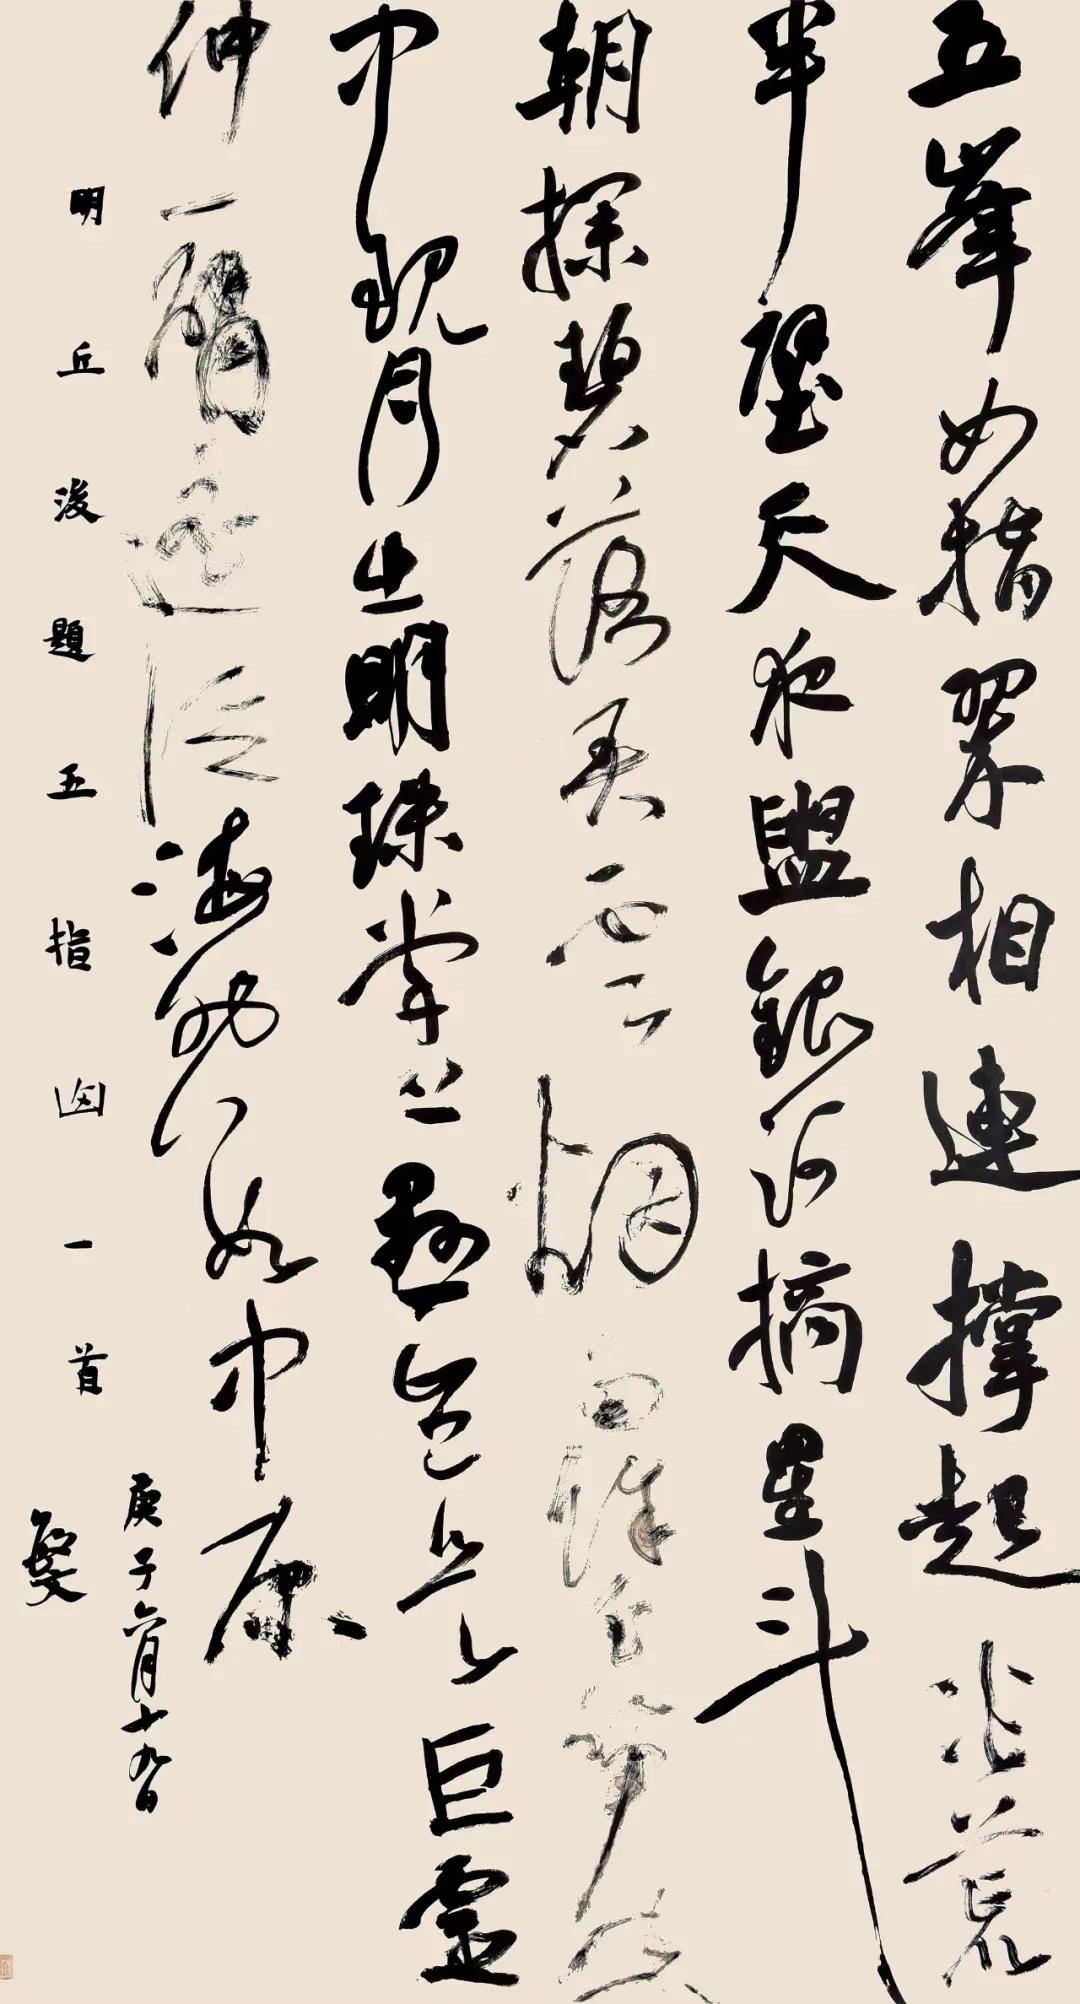 五峯如指翠相連撐起炎荒
半壁天夜盥銀河摘星斗
朝探碧落弄雲烟雨餘玉笋空
中現月出明珠掌上懸豈是巨靈
伸一臂遙從海外數中原
明丘浚題五指一首
庚子六月十九日